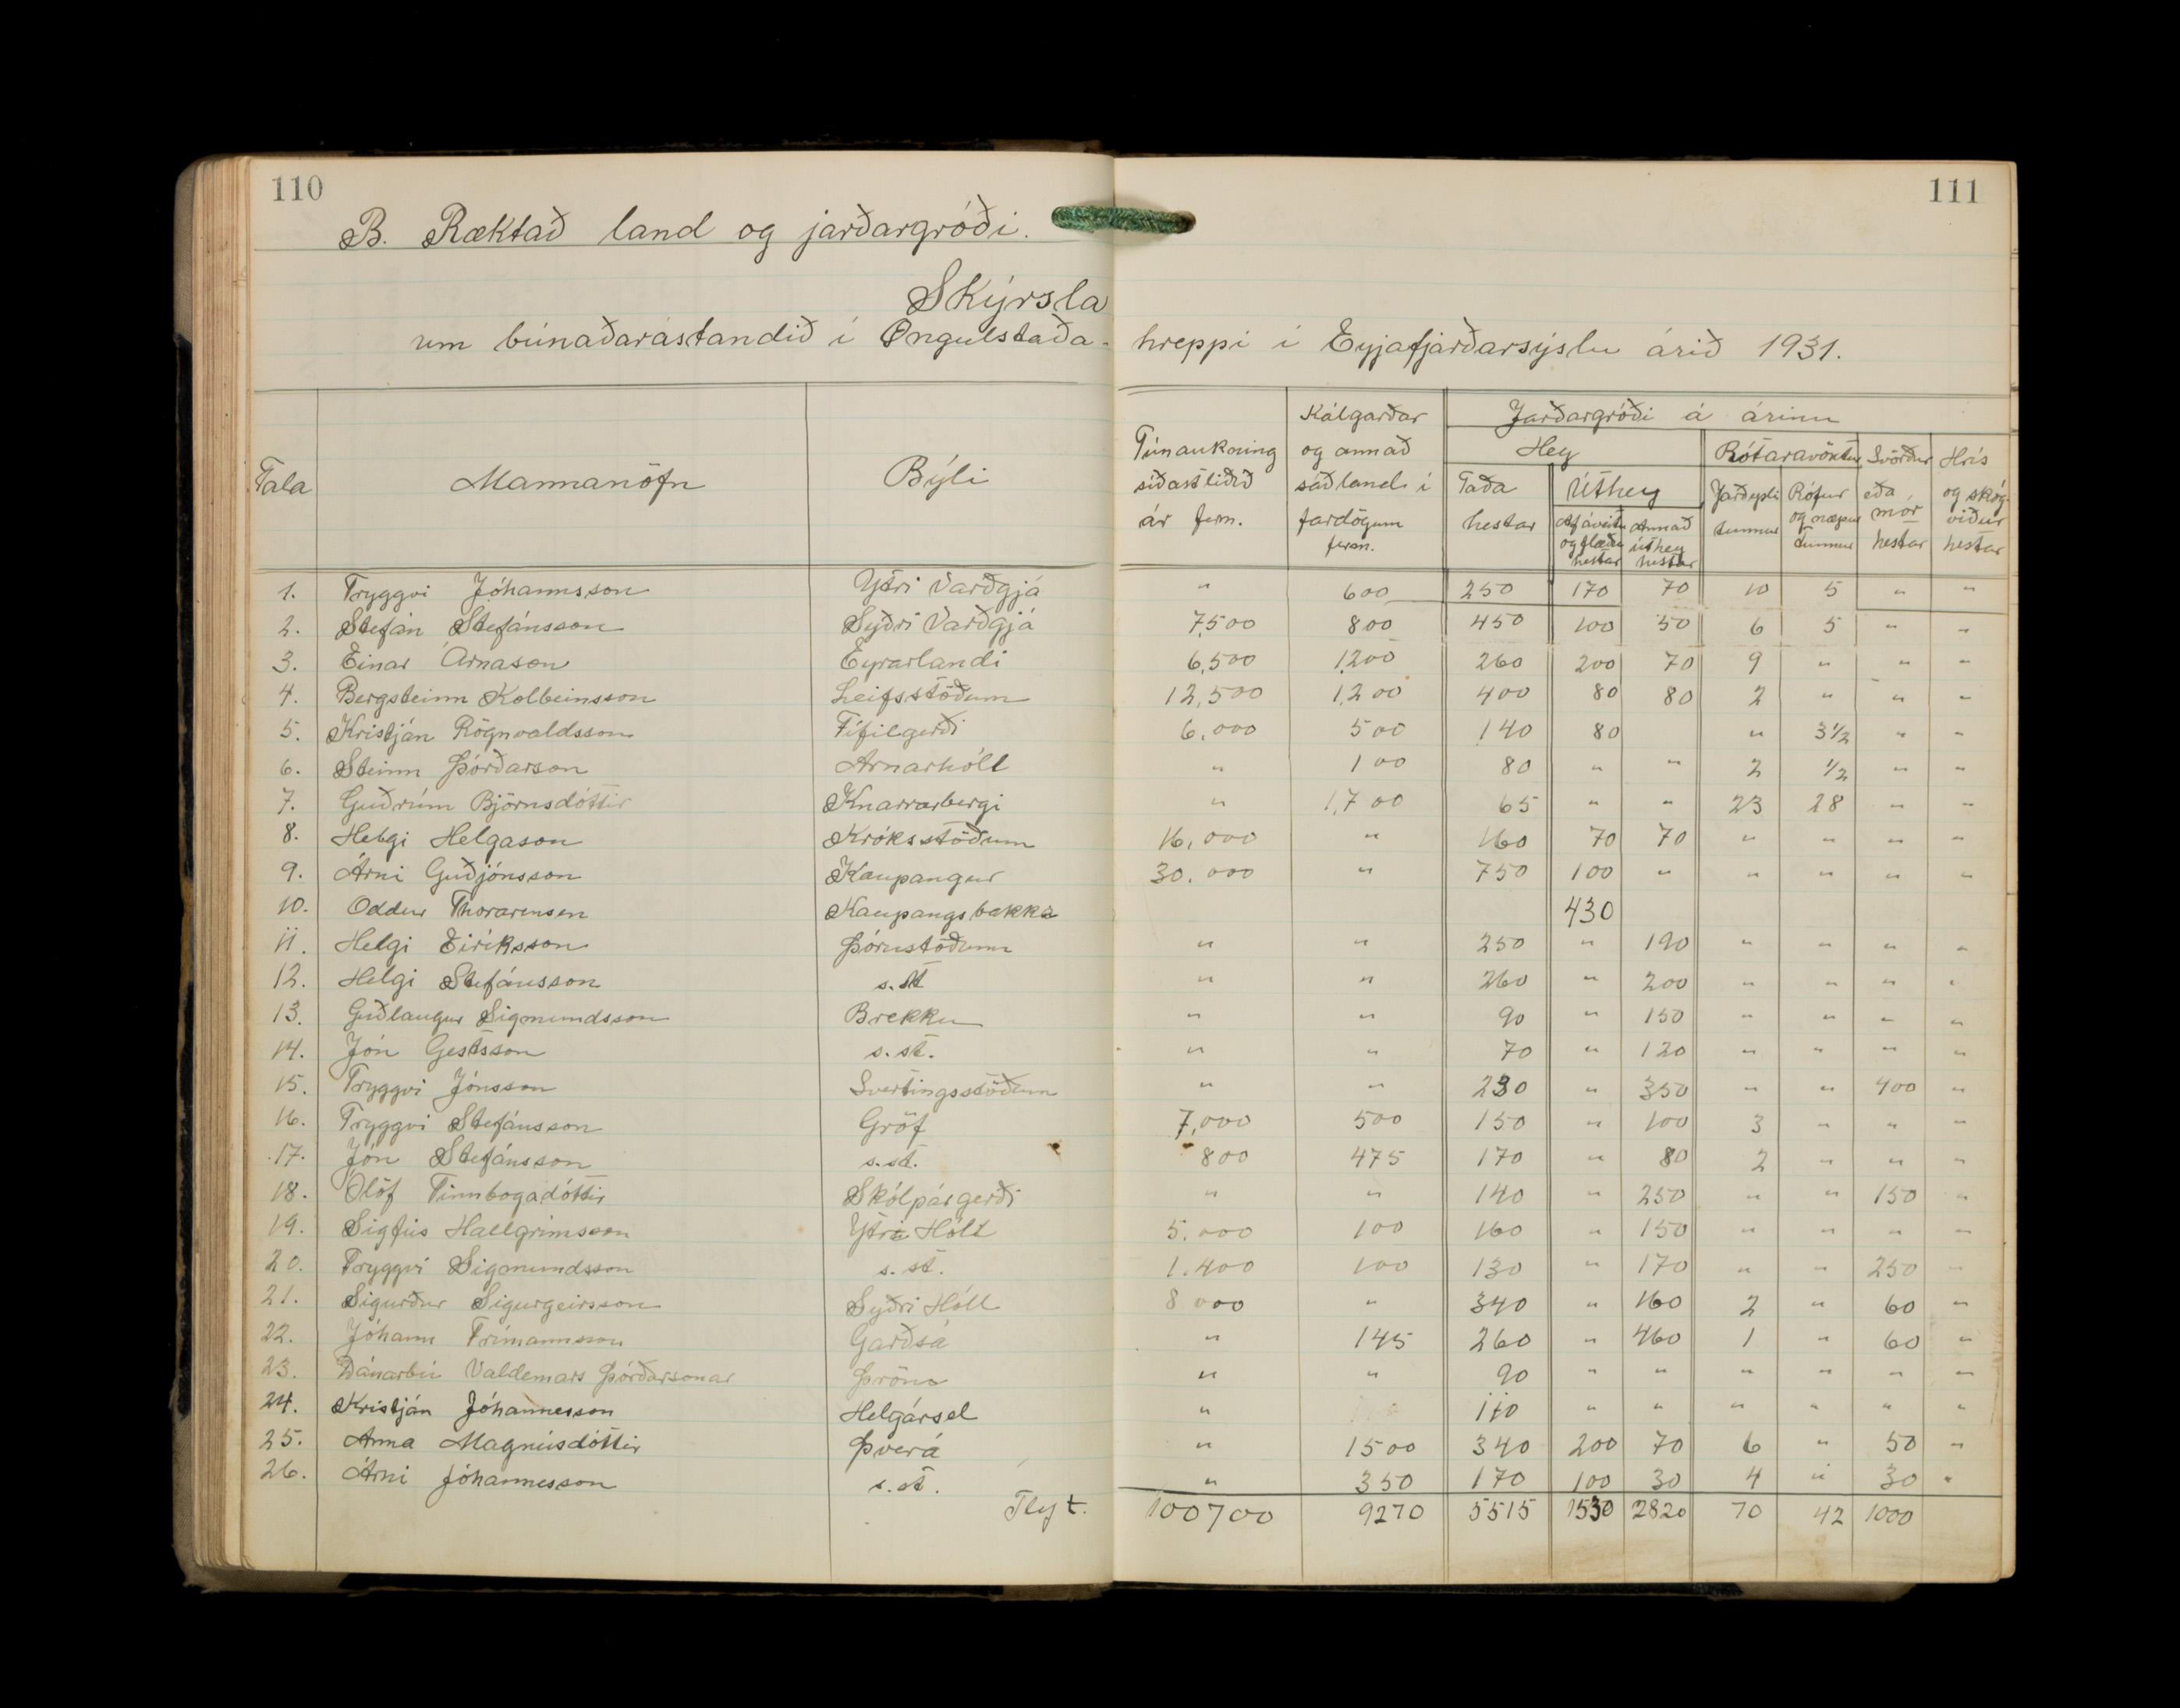 110
111
B. Ræktað land og jarðargróði.
Skýrsla
um búnaðarástandið í Öngulstaða- hreppi í Eyjafjarðarsýslu árið 1931.
Tala Mannanöfn Býli Túnaukning síðastliðið ár ferm. Kálgarðar og annað sáðland í fardögum ferm. Jarðargróði á árinu
Hey Rótarávöxtur Svörður eða mór hestar Hrís og skógviður hestar
Taða hestar Úthey Jarðepli tunnur Rófur og næpur tunnur
Af áveitu og flæðu hestar Annað úthey hestar
1. Tryggvi Jóhannsson Ytri Varðgjá " 600 250 170 70 10 5 " "
2. Stefán Stefánsson Syðri Varðgjá 7,500 800 450 100 50 6 5 " "
3. Einar Árnason Eyrarlandi 6,500 1,200 260 200 70 9 " " "
4. Bergsteinn Kolbeinsson Leifsstöðum 12,500 1,200 400 80 80 2 " " "
5. Kristján Rögnvaldsson Fífilgerði 6,000 500 140 80 " 3 1/2 " "
6. Steinn Þórðarson Arnarhóll " 100 80 " " 2 1/2 " "
7. Guðrún Björnsdóttir Knarrarbergi " 1,700 65 " " 23 28 " "
8. Helgi Helgason Króksstöðum 16,000 " 160 70 70 " " " "
9. Árni Guðjónsson Kaupangur 30.000 " 750 100 " " " " "
10. Oddur Thorarensen Kaupangsbakka 430
11. Helgi Eiríksson Þórustöðum " " 250 " 190 " " " "
12. Helgi Stefánsson s.st " " 260 " 200 " " " "
13. Guðlaugur Sigmundsson Brekku " " 90 " 150 " " " "
14. Jón Gestsson s.st. " " 70 " 120 " " " "
15. Tryggvi Jónsson Svertingsstöðum " " 230 " 350 " " 400 "
16. Tryggvi Stefánsson Gröf 7,000 500 150 " 100 3 " " "
17. Jón Stefánsson s.st. 800 475 170 " 80 2 " " "
18. Ólöf Finnbogadóttir Skólpásgerði " " 140 " 250 " " 150 "
19. Sigfús Hallgrímsson Ytri Hóll 5.000 100 160 " 150 " " " "
20. Tryggvi Sigmundsson s.st. 1.400 100 130 " 170 " " 250 "
21. Sigurður Sigurgeirsson Syðri Hóll 8 000 " 340 " 160 2 " 60 "
22. Jóhann Frímannsson Garðsá " 145 260 " 460 1 " 60 "
23. Dánarbú Valdemars Þórðarsonar Þröm " " 90 " " " " " "
24. Kristján Jóhannesson Helgársel " 110 " " " " " "
25. Anna Magnúsdóttir Þverá " 1500 340 200 70 6 " 50 "
26. Árni Jóhannesson s.st. " 350 170 100 30 4 " 30 "
Flyt. 100700 9270 5515 1530 2820 70 42 1000